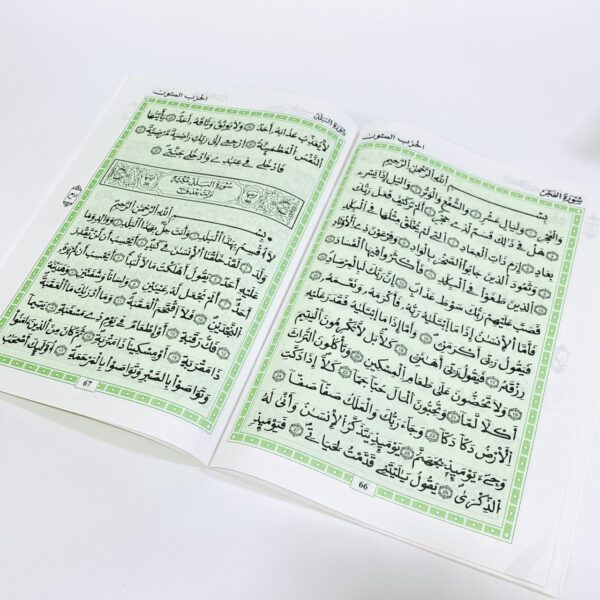 سُورَةُ الْفَجْرِ
الحزب الستون
بِسْمِ اللَّهِ الرَّحْمَٰنِ الرَّحِيمِ
وَالْفَجْرِ ① وَلَيَالٍ عَشْرٍ ② وَالشَّفْعِ وَالْوَتْرِ ③ وَالَّيْلِ إِذَا يَسْرِۦ ④
هَلْ فِي ذَٰلِكَ قَسَمٌ لِّذِے حِجْرٍ ⑤ أَلَمْ تَرَ كَيْفَ فَعَلَ رَبُّكَ
بِعَادٍ ⑥ إِرَمَ ذَاتِ الْعِمَادِ ⑦ الَّتِے لَمْ يُخْلَقْ مِثْلُهَا فِي الْبِلَٰدِ
⑧ وَثَمُودَ الَّذِينَ جَابُوا الصَّخْرَ بِالْوَادِۦ ⑨ وَفِرْعَوْنَ ذِے الْأَوْتَادِ
⑩ الَّذِينَ طَغَوْا فِي الْبِلَٰدِ ⑪ فَأَكْثَرُوا فِيهَا الْفَسَادَ ⑫
فَصَبَّ عَلَيْهِمْ رَبُّكَ سَوْطَ عَذَابٍ ⑬ إِنَّ رَبَّكَ لَبِالْمِرْصَادِ ⑭
فَأَمَّا الْإِنسَٰنُ إِذَا مَا ابْتَلَيٰهُ رَبُّهُۥ فَأَكْرَمَهُۥ وَنَعَّمَهُۥ
فَيَقُولُ رَبِّيَ أَكْرَمَنِۦ ⑮ وَأَمَّا إِذَا مَا ابْتَلَيٰهُ فَقَدَرَ عَلَيْهِ
رِزْقَهُۥ ⑯ فَيَقُولُ رَبِّيَ أَهَٰنَنِۦ ⑰ كَلَّا بَل لَّا تُكْرِمُونَ الْيَتِيمَ
⑱ وَلَا تَحُضُّونَ عَلَىٰ طَعَامِ الْمِسْكِينِ ⑲ وَتَأْكُلُونَ التُّرَاثَ
أَكْلًا لَّمًّا ⑳ وَتُحِبُّونَ الْمَالَ حُبًّا جَمًّا كَلَّا إِذَا دُكَّتِ
الْأَرْضُ دَكًّا دَكًّا وَجَاءَ رَبُّكَ وَالْمَلَكُ صَفًّا صَفًّا
وَجِےءَ يَوْمَئِذٍ بِجَهَنَّمَ يَوْمَئِذٍ يَتَذَكَّرُ الْإِنسَٰنُ وَأَنَّىٰ لَهُ
الذِّكْرَىٰ يَقُولُ يَٰلَيْتَنِے قَدَّمْتُ لِحَيَاتِے فَيَوْمَئِذٍ
66
سُورَةُ الْبَلَدِ
الحزب الستون
لَّا يُعَذِّبُ عَذَابَهُۥ أَحَدٌ وَلَا يُوثِقُ وَثَاقَهُۥ أَحَدٌ يَٰأَيَّتُهَا
النَّفْسُ الْمُطْمَئِنَّةُ ارْجِعِے إِلَىٰ رَبِّكِ رَاضِيَةً مَّرْضِيَّةً
فَادْخُلِے فِے عِبَٰدِے وَادْخُلِے جَنَّتِے
سُورَةُ الْبَلَدِ مَكِّيَّةٌ
بِسْمِ اللَّهِ الرَّحْمَٰنِ الرَّحِيمِ
لَا أُقْسِمُ بِهَٰذَا الْبَلَدِ وَأَنتَ حِلٌّ بِهَٰذَا الْبَلَدِ وَوَالِدٍ وَمَا
وَلَدَ لَقَدْ خَلَقْنَا الْإِنسَٰنَ فِي كَبَدٍ أَيَحْسِبُ أَن لَّن يَّقْدِرَ
عَلَيْهِ أَحَدٌ يَقُولُ أَهْلَكْتُ مَالًا لُّبَدًا أَيَحْسِبُ أَن لَّمْ يَرَهُۥ
أَحَدٌ أَلَمْ نَجْعَل لَّهُۥ عَيْنَيْنِ وَلِسَانًا وَشَفَتَيْنِ وَهَدَيْنَٰهُ
النَّجْدَيْنِ فَلَا اقْتَحَمَ الْعَقَبَةَ وَمَا أَدْرَىٰكَ مَا الْعَقَبَةُ
فَكُّ رَقَبَةٍ أَوْ إِطْعَٰمٌ فِي يَوْمٍ ذِے مَسْغَبَةٍ يَتِيمًا
ذَا مَقْرَبَةٍ أَوْ مِسْكِينًا ذَا مَتْرَبَةٍ ثُمَّ كَانَ مِنَ الَّذِينَ ءَامَنُوا
وَتَوَاصَوْا بِالصَّبْرِ وَتَوَاصَوْا بِالْمَرْحَمَةِ أُوْلَٰئِكَ أَصْحَٰبُ
67